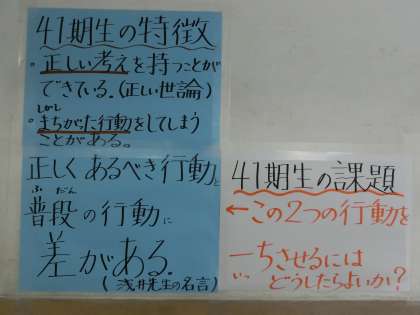 41期生の特徴
。正しい考えを持つことが
できている。(正しい世論)
しかし
。まちがった行動をしてしまう
ことがある。
正しくあるべき行動と
ふだん
普段の行動に
差がある。
(浅井先生の名言)
41期生の課題
←この2つの行動を
一ちさせるには
いっ
どうしたらよいか?